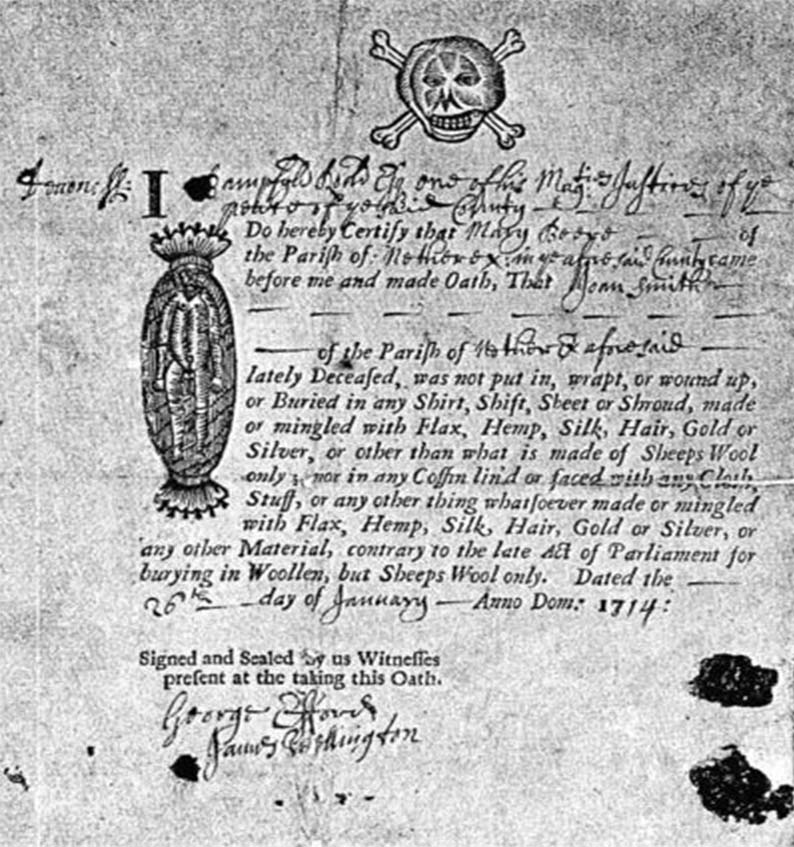 Devon: ss:
I Esq one of his Maj:ties Justices of ye
peace of ye said County
Do hereby Certify that Mary Beere of
the Pariſh of Netherex in ye afore said County came
before me and made Oath, That Joan Smith
of the Pariſh of Nether Ex afore said
lately Deceaſed, was not put in, wrapt, or wound up,
or Buried in any Shirt, Shift, Sheet or Shroud, made
or mingled with Flax, Hemp, Silk, Hair, Gold or
Silver, or other than what is made of Sheeps Wool
only; nor in any Coffin lin'd or faced with any Cloth,
Stuff, or any other thing whatſoever made or mingled
with Flax, Hemp, Silk, Hair, Gold or Silver, or
any other Material, contrary to the late Act of Parliament for
burying in Woollen, but Sheeps Wool only. Dated the
26th day of January Anno Dom: 1714:
Signed and Sealed by us Witneſſes
preſent at the taking this Oath.
George
James